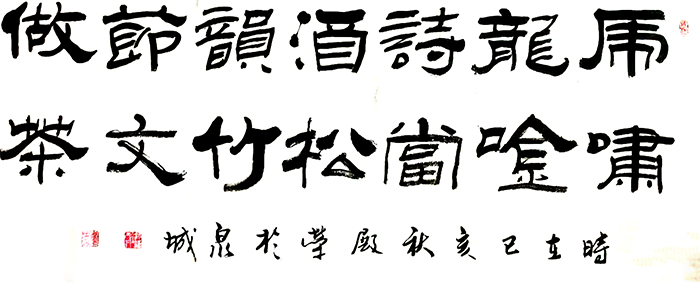 虎嘯
龍唫
詩當
酒松
韻竹
節文
做茶
時在己亥秋殿榮於泉城